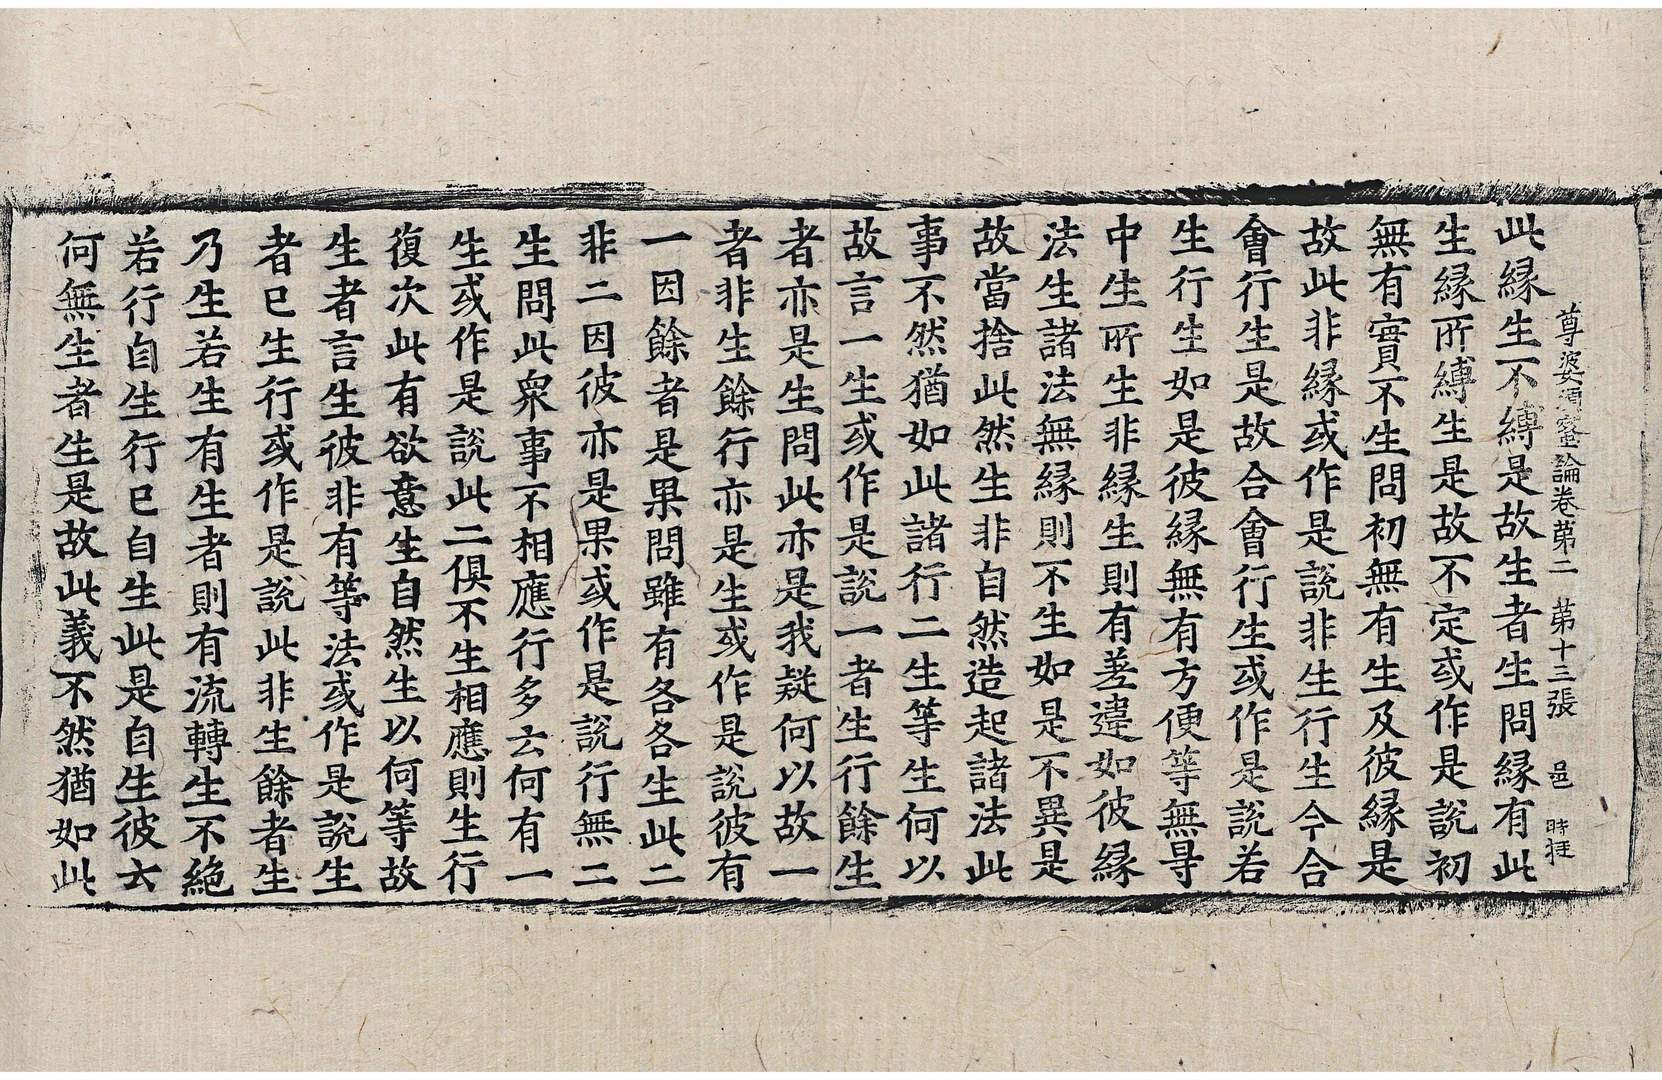 尊婆須蜜論卷第二　第十三張　邑　時㧪
此緣生不縛是故生者生問緣有此
生緣所縛生是故不定或作是說初
無有實不生問初無有生及彼緣是
故此非緣或作是說非生行生今合
會行生是故合會行生或作是說若
生行生如是彼緣無有方便等無㝵
中生所生非緣生則有差違如彼緣
法生諸法無緣則不生如是不異是
故當捨此然生非自然造起諸法此
事不然猶如此諸行二生等生何以
故言一生或作是說一者生行餘生
者亦是生問此亦是我疑何以故一
者非生餘行亦是生或作是說彼有
一因餘者是果問雖有各各生此二
非二因彼亦是果或作是說行無二
生問此衆事不相應行多云何有一
生或作是說此二俱不生相應則生行
復次此有欲意生自然生以何等故
生者言生彼非有等法或作是說生
者已生行或作是說此非生餘者生
乃生若生有生者則有流轉生不絕
若行自生行已自生此是自生彼云
何無生者生是故此義不然猶如此